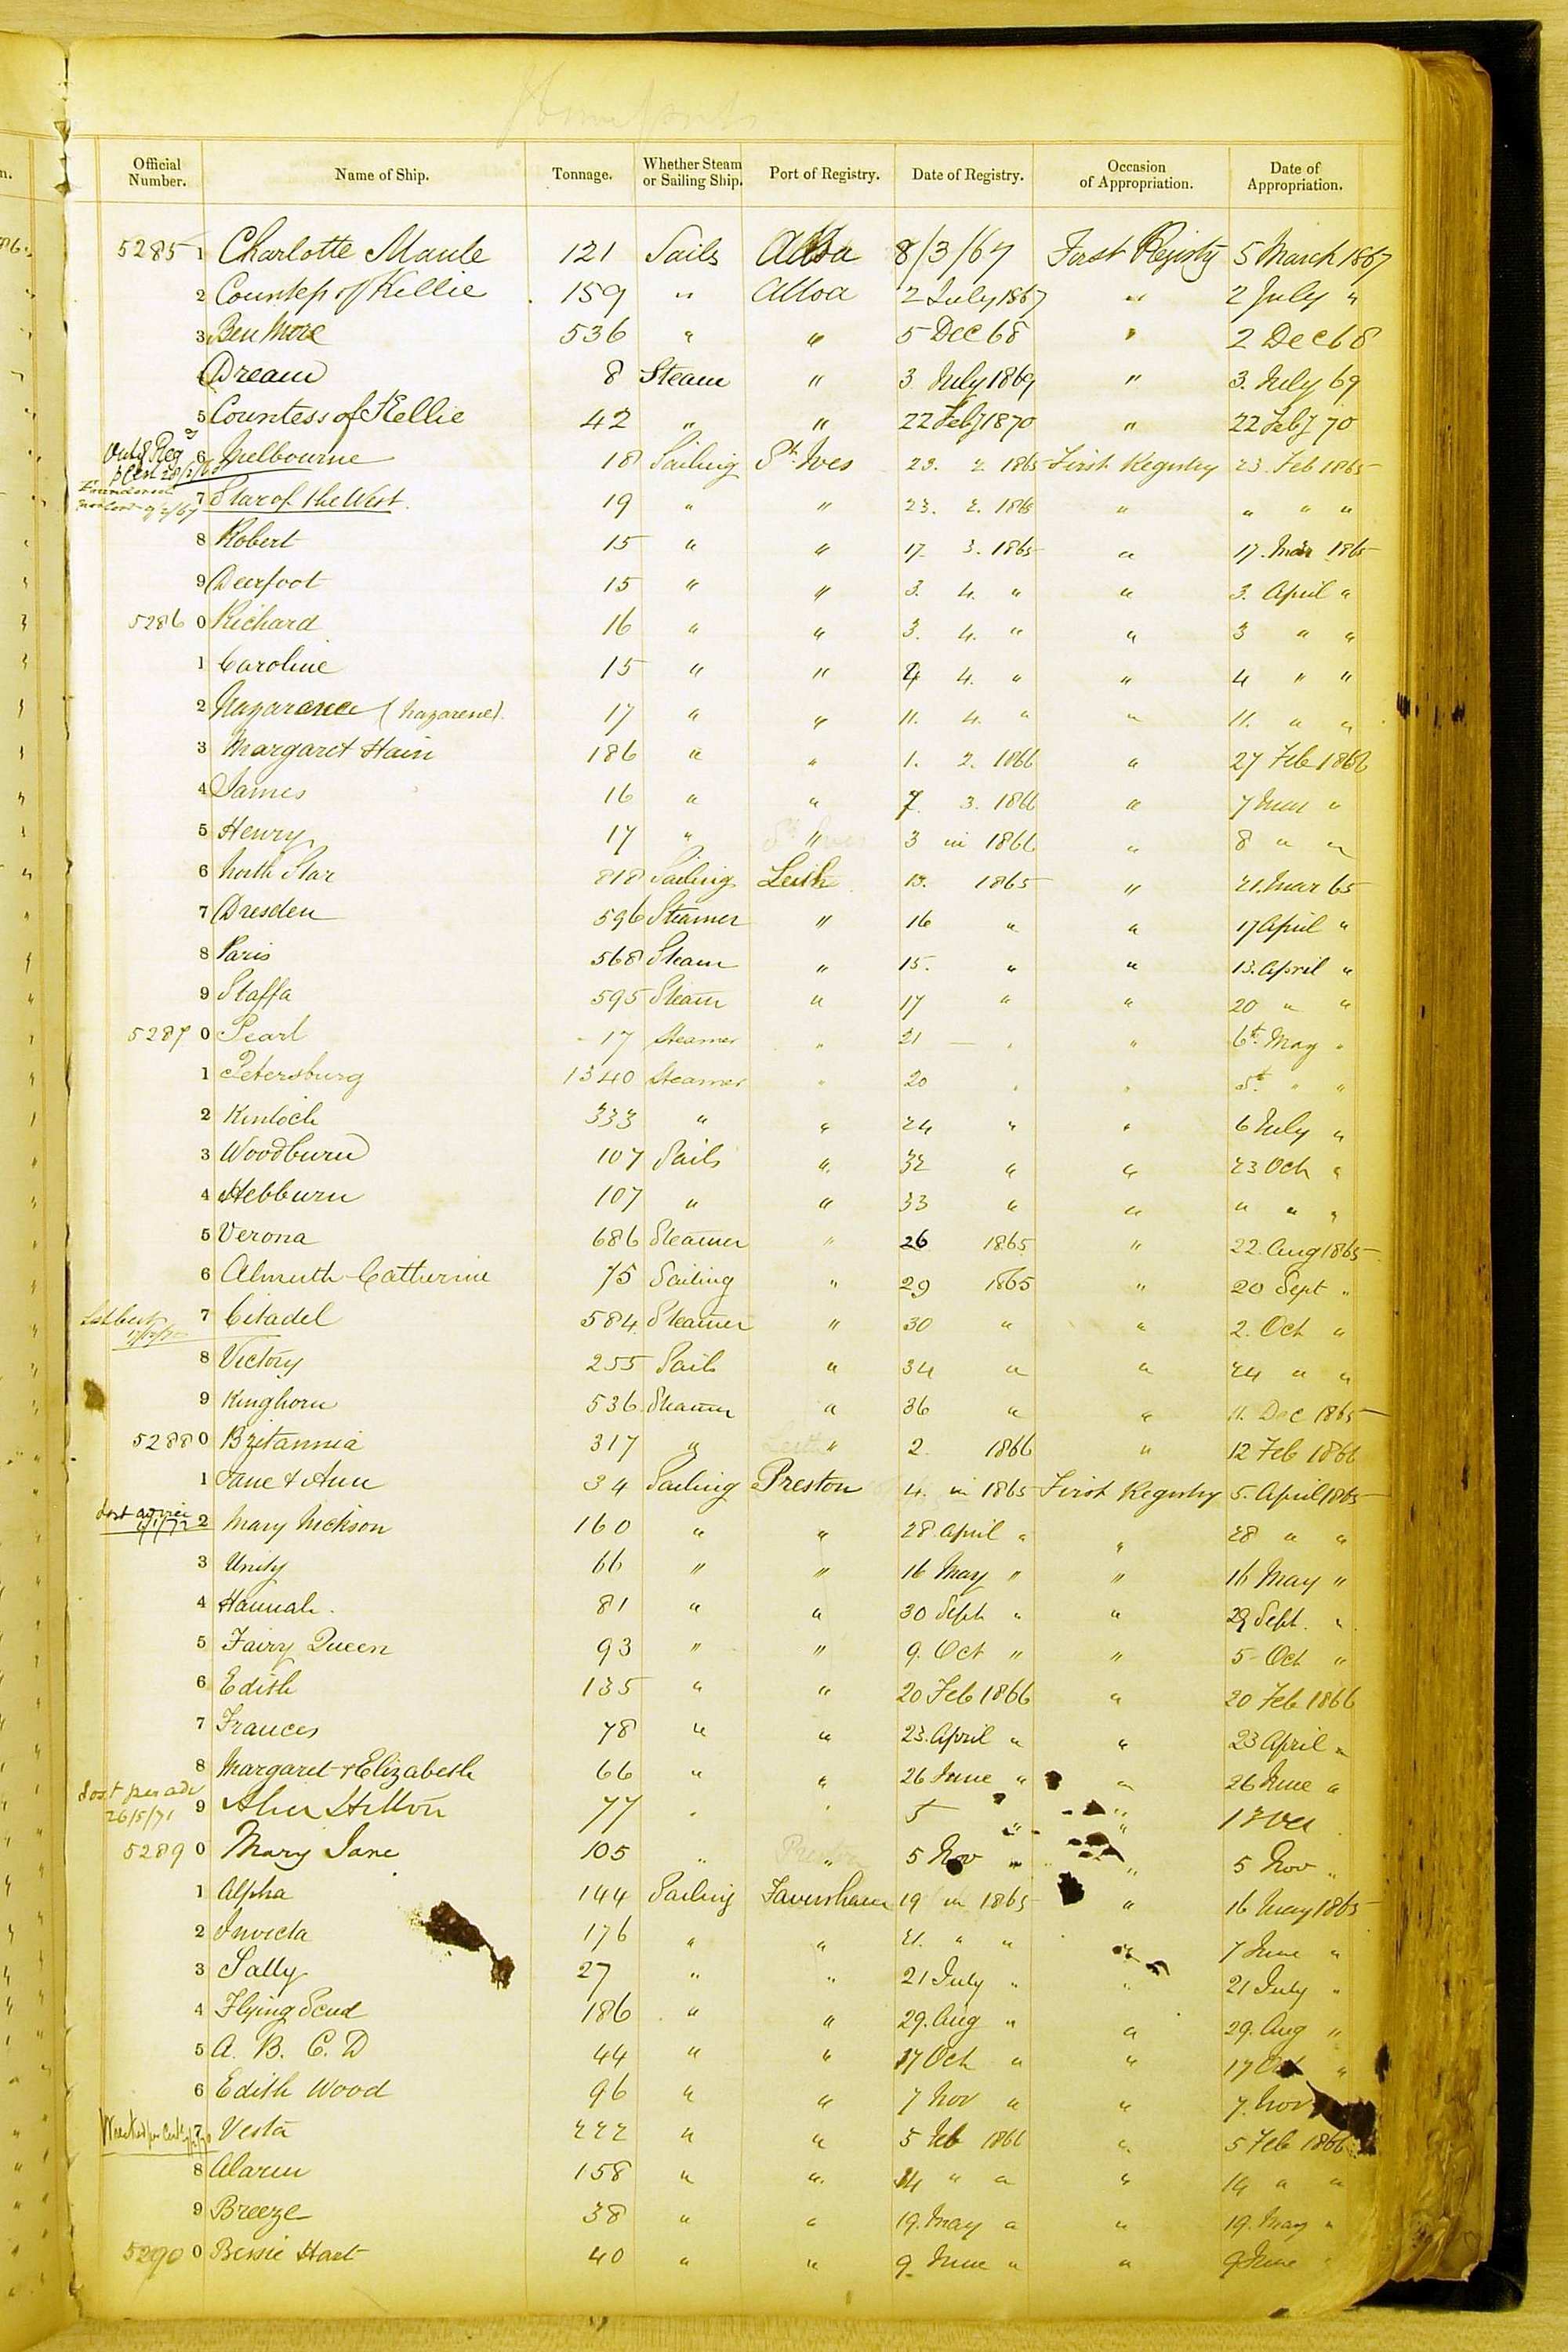 Official Number. Name of Ship. Tonnage. Whether Steam or Sailing Ship. Port of Registry. Date of Registry. Occasion of Appropriation. Date of Appropriation.
5285 1 Charlotte Maule 121 Sails Alloa 8/3/67 First Registy 5 March 1867
2 Countess of Kellie 159 " Alloa 2 July 1867 " 2 July "
3 Ben More 536 " " 5 Dec 68 " 2 Dec 68
4 Dream 8 Steam " 3 July 1869 " 3. July 69
5 Countess of Kellie 42 " " 22 Feby 1870 " 22 Feby 70
6 Melbourne 18 Sailing St. Ives 23. 2. 1865 First Registry 23. Feb 1865
7 Star of the West. 19 " " 23. 2. 1865 " " " "
8 Robert 15 " " 17 3. 1865 " 17. Mar 1865
9 Deerfoot 15 " " 3. 4. " " 3. April "
5286 0 Richard 16 " " 3. 4. " " 3 " "
1 Caroline 15 " " 4 4. " " 4 " "
2 (Nazarene). 17 " " 11. 4. " " 11. " "
3 Margaret Hain 186 " " 1. 2. 1866 " 27 Feb 1866
4 James 16 " " 7 3. 1866 " 7 Mar "
5 Henry 17 " " 3 in 1866 " 8 " "
6 North Star 818 Sailing Leith 13. 1865 " 21. Mar 65
7 Dresden 596 Steamer " 16 " " 17 April "
8 Paris 568 Steam " 15. " " 13. April "
9 Staffa 595 Steam " 17 " " 20 " "
5287 0 Pearl 17 Steamer " 21 — " " 6th. May "
1 Petersburg 1340 Steamer " 20 " " 5th. " "
2 Kinloch 333 " " 24 " " 6 July "
3 Woodburn 107 Sails " 32 " " 23 Oct "
4 Hebburn 107 " " 33 " " " " "
5 Verona 686 Steamer " 26 1865 " 22. Aug 1865
6 Almuth-Catherine 75 Sailing " 29 1865 " 20 Sept "
7 Citadel 584 Steamer " 30 " " 2. Oct "
8 Victory 255 Sails " 34 " " 24 " "
9 Kinghorn 536 Steamer " 36 " " 11. Dec 1865
5288 0 Britannia 317 " " 2. 1866 " 12 Feb 1866
1 Jane & Ann 34 Sailing Preston 4. in 1865 First Registry 5. April 1865
2 Mary Nickson 160 " " 28 April " " 28 " "
3 Unity 66 " " 16 May " " 16 May "
4 Hannah. 81 " " 30 Sept " " 29 Sept. "
5 Fairy Queen 93 " " 9. Oct " " 5 Oct "
6 Edith 135 " " 20 Feb 1866 " 20 Feb 1866
7 Frances 78 " " 23. April " " 23 April "
8 Margaret & Elizabeth 66 " " 26 June " " 26 June "
Lost per adv 26/5/71
9 Hilton 77 " " 5 " "
5289 0 Mary Jane 105 " " 5 Nov " " 5 Nov "
1 Alpha 144 Sailing Faversham 19 in 1865 " 16 May 1865
2 Invicta 176 " " 21. " " 7 June "
3 Sally 27 " " 21 July " " 21 July "
4 Flying Scud 186 " " 29. Aug " " 29. Aug "
5 A. B. C. D 44 " " 17 Oct " " 17 Oct "
6 Edith Wood 96 " " 7 Nov " " 7. Nov
7 Vesta 222 " " 5 Feb 1866 " 5 Feb 1866
8 Alarm 158 " " 14 " " " 14 " "
9 Breeze 38 " " 19. May " " 19. May "
5290 0 Bessie Hart 40 " " 9 June " " 9 June "